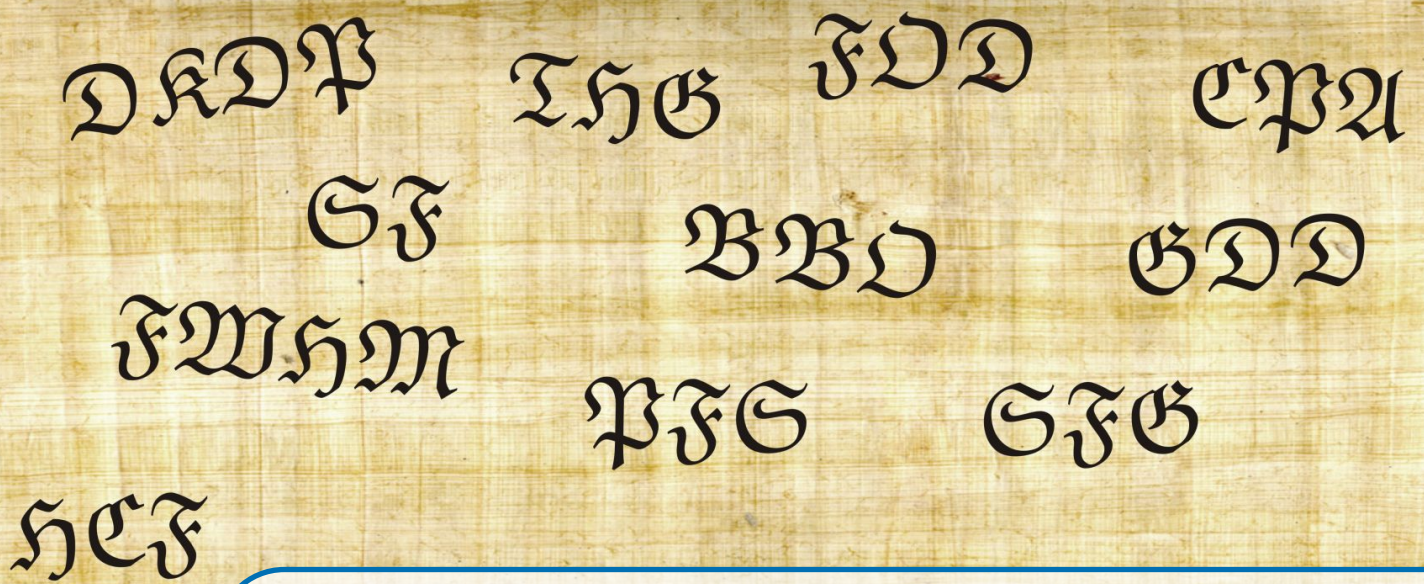 DKDP
THG
FOD
CPA
SF
BBO
GDD
FWHM
PFS
SFG
HCF